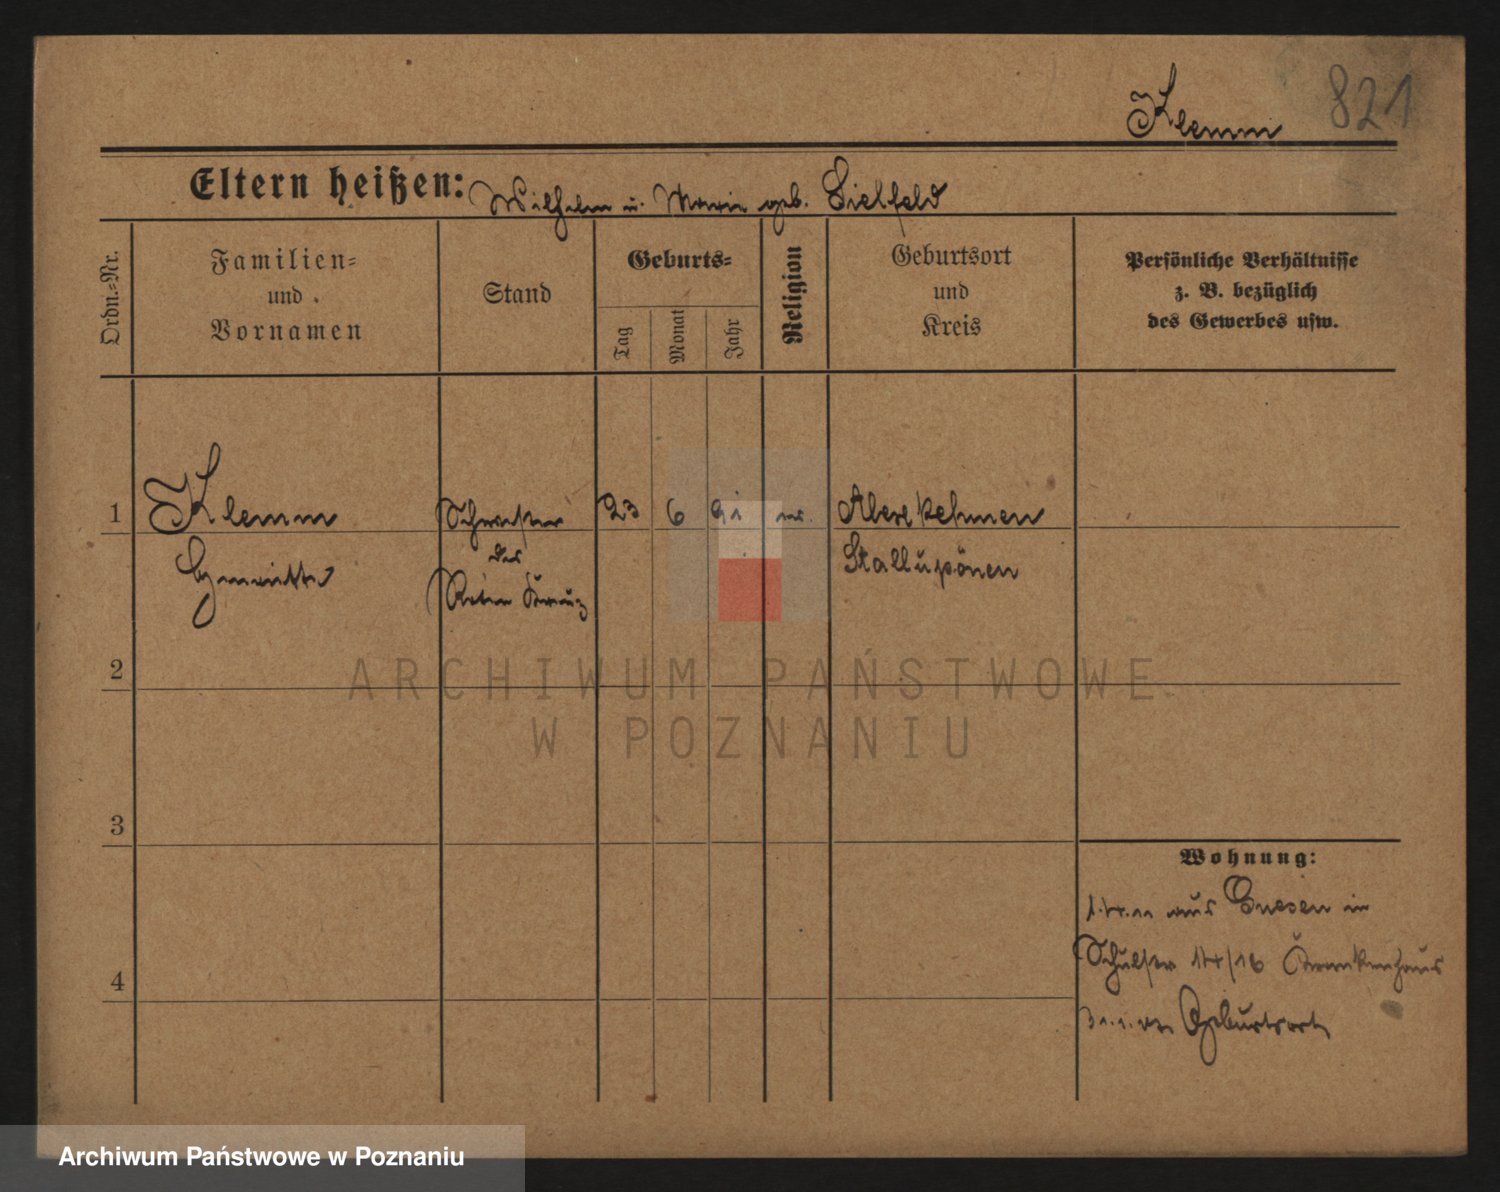 Klemm 821
Eltern heißen: Wilhelm u. Marie geb. Sielfeld
Ordn.-Nr.
Familien-
und
Vornamen
Stand
Geburts-
Tag
Monat
Jahr
Religion
Geburtsort
und
Kreis
Persönliche Verhältnisse
z. B. bezüglich
des Gewerbes usw.
1 Klemm Schwester 23 6 91 ev.
Henriette des
Roten Kreuz
Stallupönen
2
3
4
Wohnung:
aus Gnesen in
Schulstr Krankenhaus
Geburtsort
ARCHIWUM PAŃSTWOWE
W POZNANIU
Archiwum Państwowe w Poznaniu